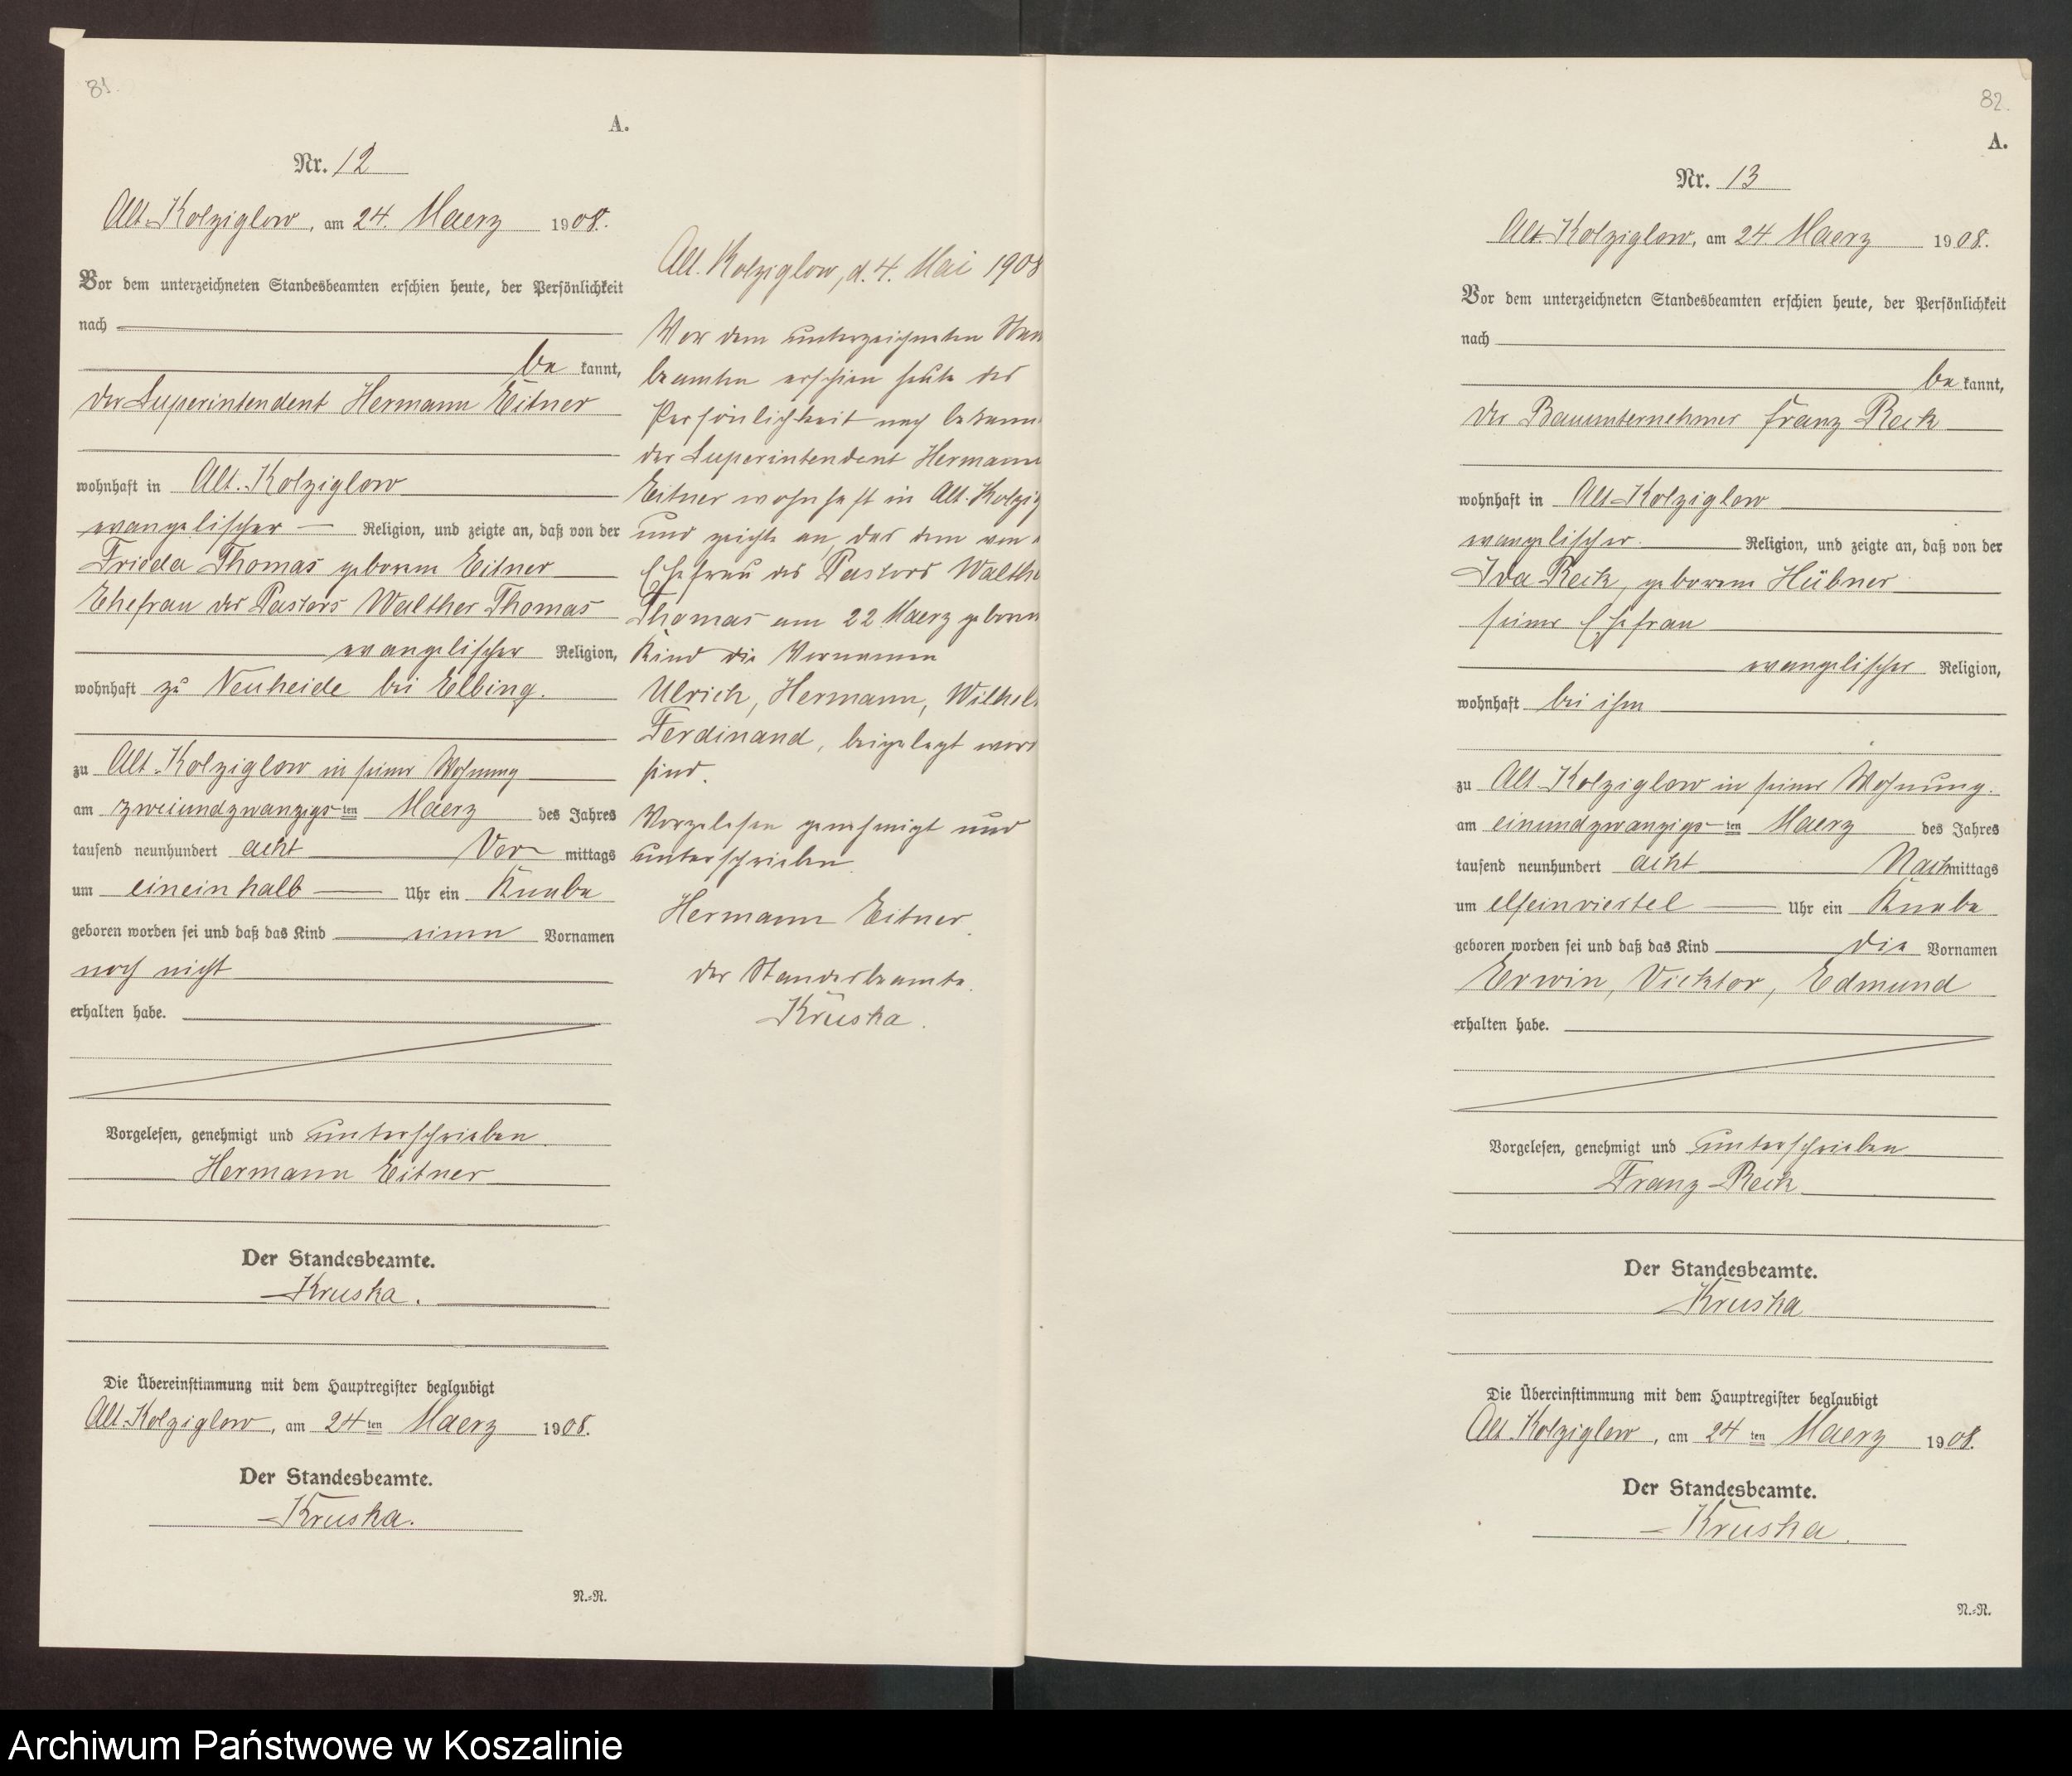 81.
A.
Nr. 12
Alt-Kolziglow, am 24. Maerz 1908.
Vor dem unterzeichneten Standesbeamten erschien heute, der Persönlichkeit
nach
be kannt,
der Superintendent Hermann Eitner
wohnhaft in Alt-Kolziglow
evangelischer Religion, und zeigte an, daß von der
Frieda Thomas geborene Eitner
Ehefrau des Pastors Walther Thomas
evangelischer Religion,
wohnhaft zu Neuheide bei Elbing.
zu Alt-Kolziglow in seiner Wohnung
am zweiundzwanzigsten Maerz des Jahres
tausend neunhundert acht Vor- mittags
um eineinhalb Uhr ein Knabe
geboren worden sei und daß das Kind einen Vornamen
noch nicht
erhalten habe.
Vorgelesen, genehmigt und unterschrieben.
Hermann Eitner
Der Standesbeamte.
Kruska.
Die Übereinstimmung mit dem Hauptregister beglaubigt
Alt-Kolziglow, am 24ten Maerz 1908.
Der Standesbeamte.
Kruska.
N.-R.
Alt. Kolziglow, d. 4. Mai 1908
Vor dem unterzeichneten Stan
beamten erschien heute der
Persönlichkeit nach bekann
der Superintendent Hermann
Eitner wohnhaft in Alt-Kolzig
und zeigte an, das dem von
Ehefrau des Pastors Walthe
Thomas am 22 Maerz geboren
Kind die Vornamen
Ulrich, Hermann, Wilhel
Ferdinand, beigelegt word
sind.
Vorgelesen genehmigt und
unterschrieben.
Hermann Eitner.
der Standesbeamte.
Kruska.
82.
A.
Nr. 13
Alt-Kolziglow, am 24. Maerz 1908.
Vor dem unterzeichneten Standesbeamten erschien heute, der Persönlichkeit
nach
be kannt,
der Bauunternehmer Franz Reck
wohnhaft in Alt-Kolziglow
evangelischer Religion, und zeigte an, daß von der
Ida Reck, geborene Hübner
seiner Ehefrau
evangelischer Religion,
wohnhaft bei ihm
zu Alt-Kolziglow in seiner Wohnung.
am einundzwanzigsten Maerz des Jahres
tausend neunhundert acht Nachmittags
um elfeinviertel Uhr ein Knabe
geboren worden sei und daß das Kind die Vornamen
Erwin, Vicktor, Edmund
erhalten habe.
Vorgelesen, genehmigt und unterschrieben
Franz Reck
Der Standesbeamte.
Kruska
Die Übereinstimmung mit dem Hauptregister beglaubigt
Alt-Kolziglow, am 24ten Maerz 1908.
Der Standesbeamte.
Kruska.
N.-R.
Archiwum Państwowe w Koszalinie